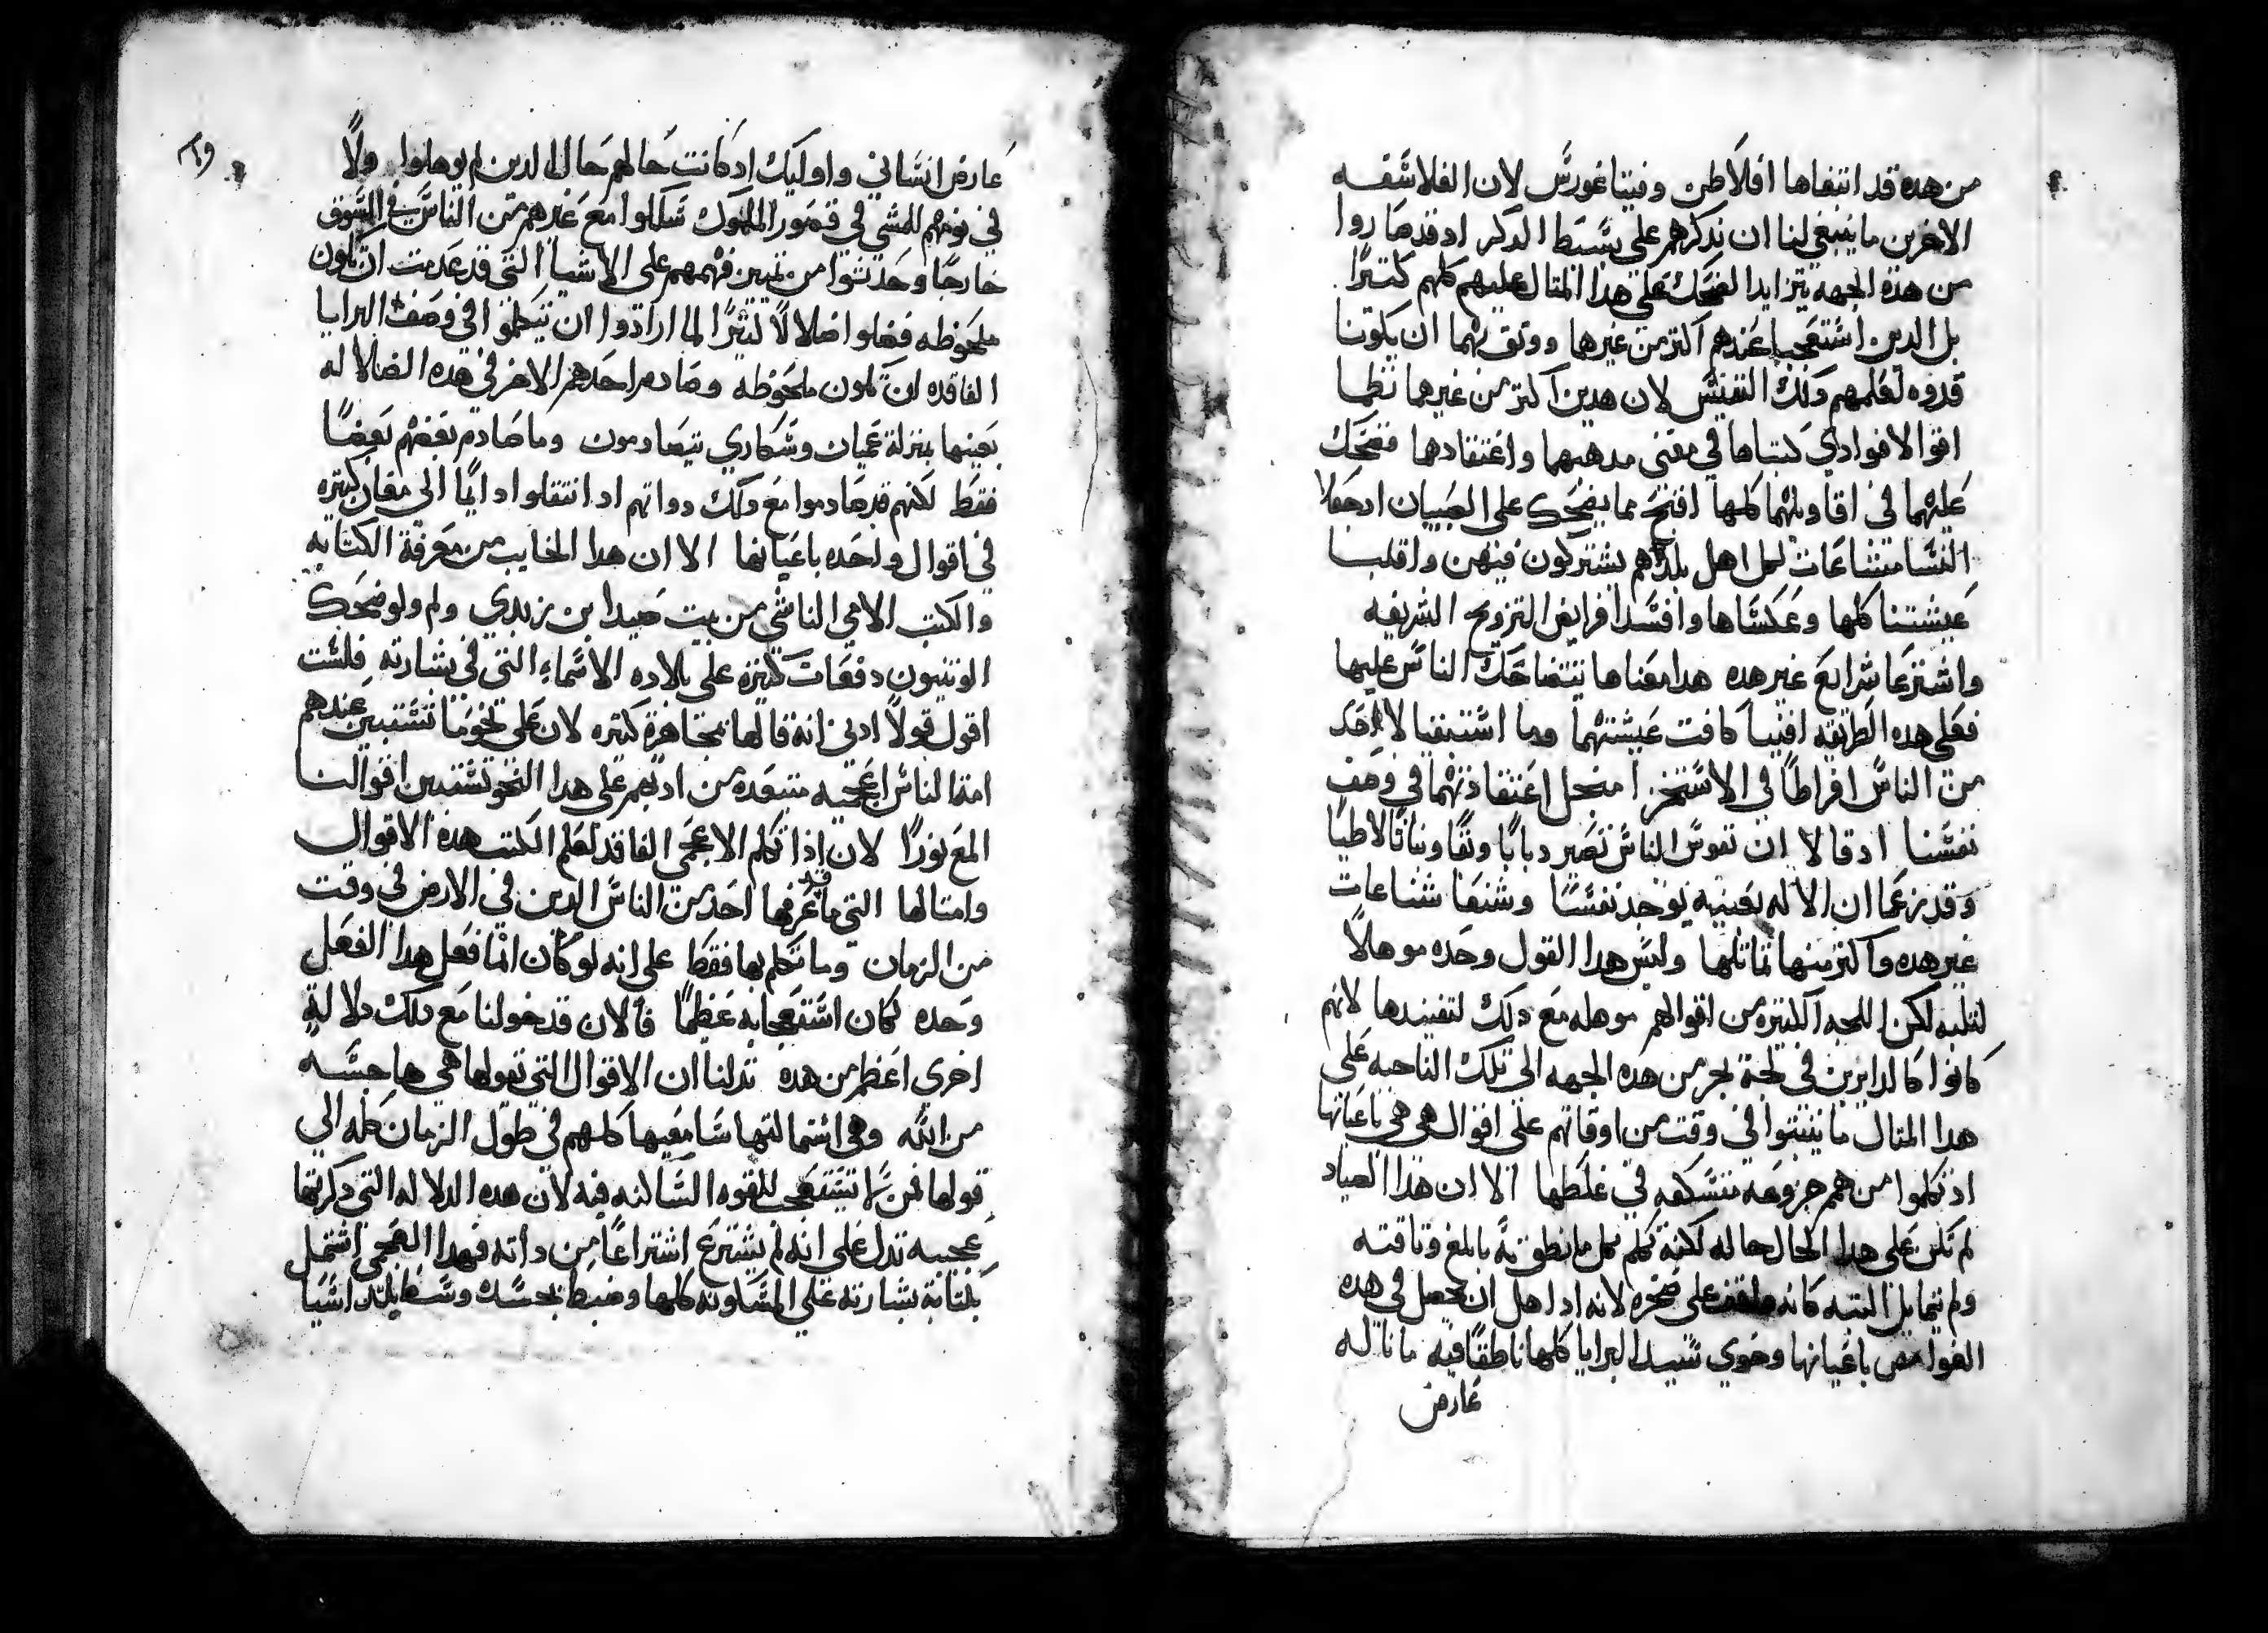 من هده قد ابتغاها افلاطن وفيتاغورس لان الفلاسفه
الاخرين ما ينبغي لنا ان ندكرهم على بسيط الدكر ادقد صاروا
من هذه الجهه يتزايد الضحك على هدا المتال عليهم كلهم كتيرًا
بل الدين استعجبا عندهم اكتر من غيرهما ووتق بهما ان يكونا
قدوه لعلمهم ولك التفتيش لان هدين اكتر من غيرهما نظما
اقوالا فوادي كتباها في معنى مدهبهما واعتقادهما فضحك
عليهما في اقاويلهما كلها افتح مما يضحك على الصبيان ادجعلا
النسا مشاعات لكل اهل بلدهم يشتركون فيهن واقلبا
عيشتنا كلها وعكساها وافسدا فرايض التزويج الشريفه
واشترعا شرايع غير هده هدا معناها يتضاحك الناس عليها
فعلى هده الطريقه افنيا كافت عيشتهما وما استبقيا لاحد
من الناس افراطًا في الاستخزا منحل اعتقادتهما في وصف
نفسنا ادقالا ان نفوس الناس تصير دبابًا وبقًا ونباتًا لاطيًا
وقد زعما ان الاله بعينه يوجد نفسًا وشنعا شناعات
غير هده واكتر منها تماتلها وليس هدا القول وحده موهلاً
لتلبه لكن اللجه الكتيره من اقوالهم موهله مع دلك لتفنيدها لانهم
كانوا كالدايرين في لجة بحر من هده الجهه الى تلك الناحيه على
هدا المتال ما يتبتوا في وقت من اوقاتهم على اقوال هي هي باعيانها
اد تكلموا من همم جزوعه متسكعه في غلطها الا ان هذا الصياد
لم تكن على هدا الحال حاله لكنه تكلم كل ما نطق به بابلغ وتاقته
ولم يتمايل البته كانه واقف على صخره لانه اد اهل ان يحصل في هده
الغوامض باعيانها وحوي سيد البرايا كلها ناطقًا فيه ما ناله
عارض
عارض انساني واوليك ادكانت حالهم حال الدين لم يوهلوا ولا
في نومهم للمشي في قصور الملوك شكلوا مع غيرهم من الناس في السوق
خارجًا وحدتوا من تمييز فهمهم على الاشيا التي قد عدمت ان تكون
ملحوظه فضلوا ضلالاً كتيرًا لما ارادوا ان يتكلموا في وصف البرايا
الفاقده ان تكون ملحوظه وصادم احدهم الاخر في هده الضلاله
بعينها بمنزلة عميان وسكاري يتصادمون وما صادم بعضهم بعضًا
فقط لكنهم قد صادموا مع دلك دواتهم اد انتقلوا دايمًا الى معان كتيره
في اقوال واحده باعيانها الا ان هدا الخايب من معرفة الكتابه
والكتب الامي الناشي من بيت صيدا بن زبدي ولم ولو ضحك
الوتنيون دفعات كتيره على بلاده الاسماء التي في بشارته فلست
اقول قولاً ادنى انه قالها بمجاهرة كتيره لان على نحو ما تستبين عندهم
امتا لناس اعجميه متبعده من ادبهم على هدا النحو تستبين اقوالنا
المع نورًا لان اذا تكلم الاعجمي الفاقد تعلم الكتب هده الاقوال
وامتالها التي ما قد عرفها احد من الناس الدين في الارض في وقت
من الزمان وما تكلم بها فقط على انه لو كان انما فعل هدا الفعل
وحده لكان استعجابه عظيمًا فالان قد خولنا مع دلك دلالة
اخرى اعظم من هده تدلنا ان الاقوال التي تقولها هي هاجسه
من الله وهي اشتمالتها سامعيها كلهم في طول الزمان كله الي
قولها فمن لا يستعجب للقوه الساكنه فيه لان هده الدلاله التي دكرتها
عجيبه تدل على انه لم يشترع اشتراعًا من داته فهدا العجمي اشتمل
بكتابة بشارته على المسكونه كلها وضبط بجسده وسط بلد اسيا